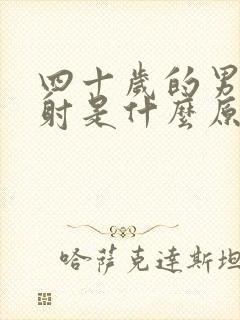 四十歲的男
射是什麼原
哈薩克達斯坦